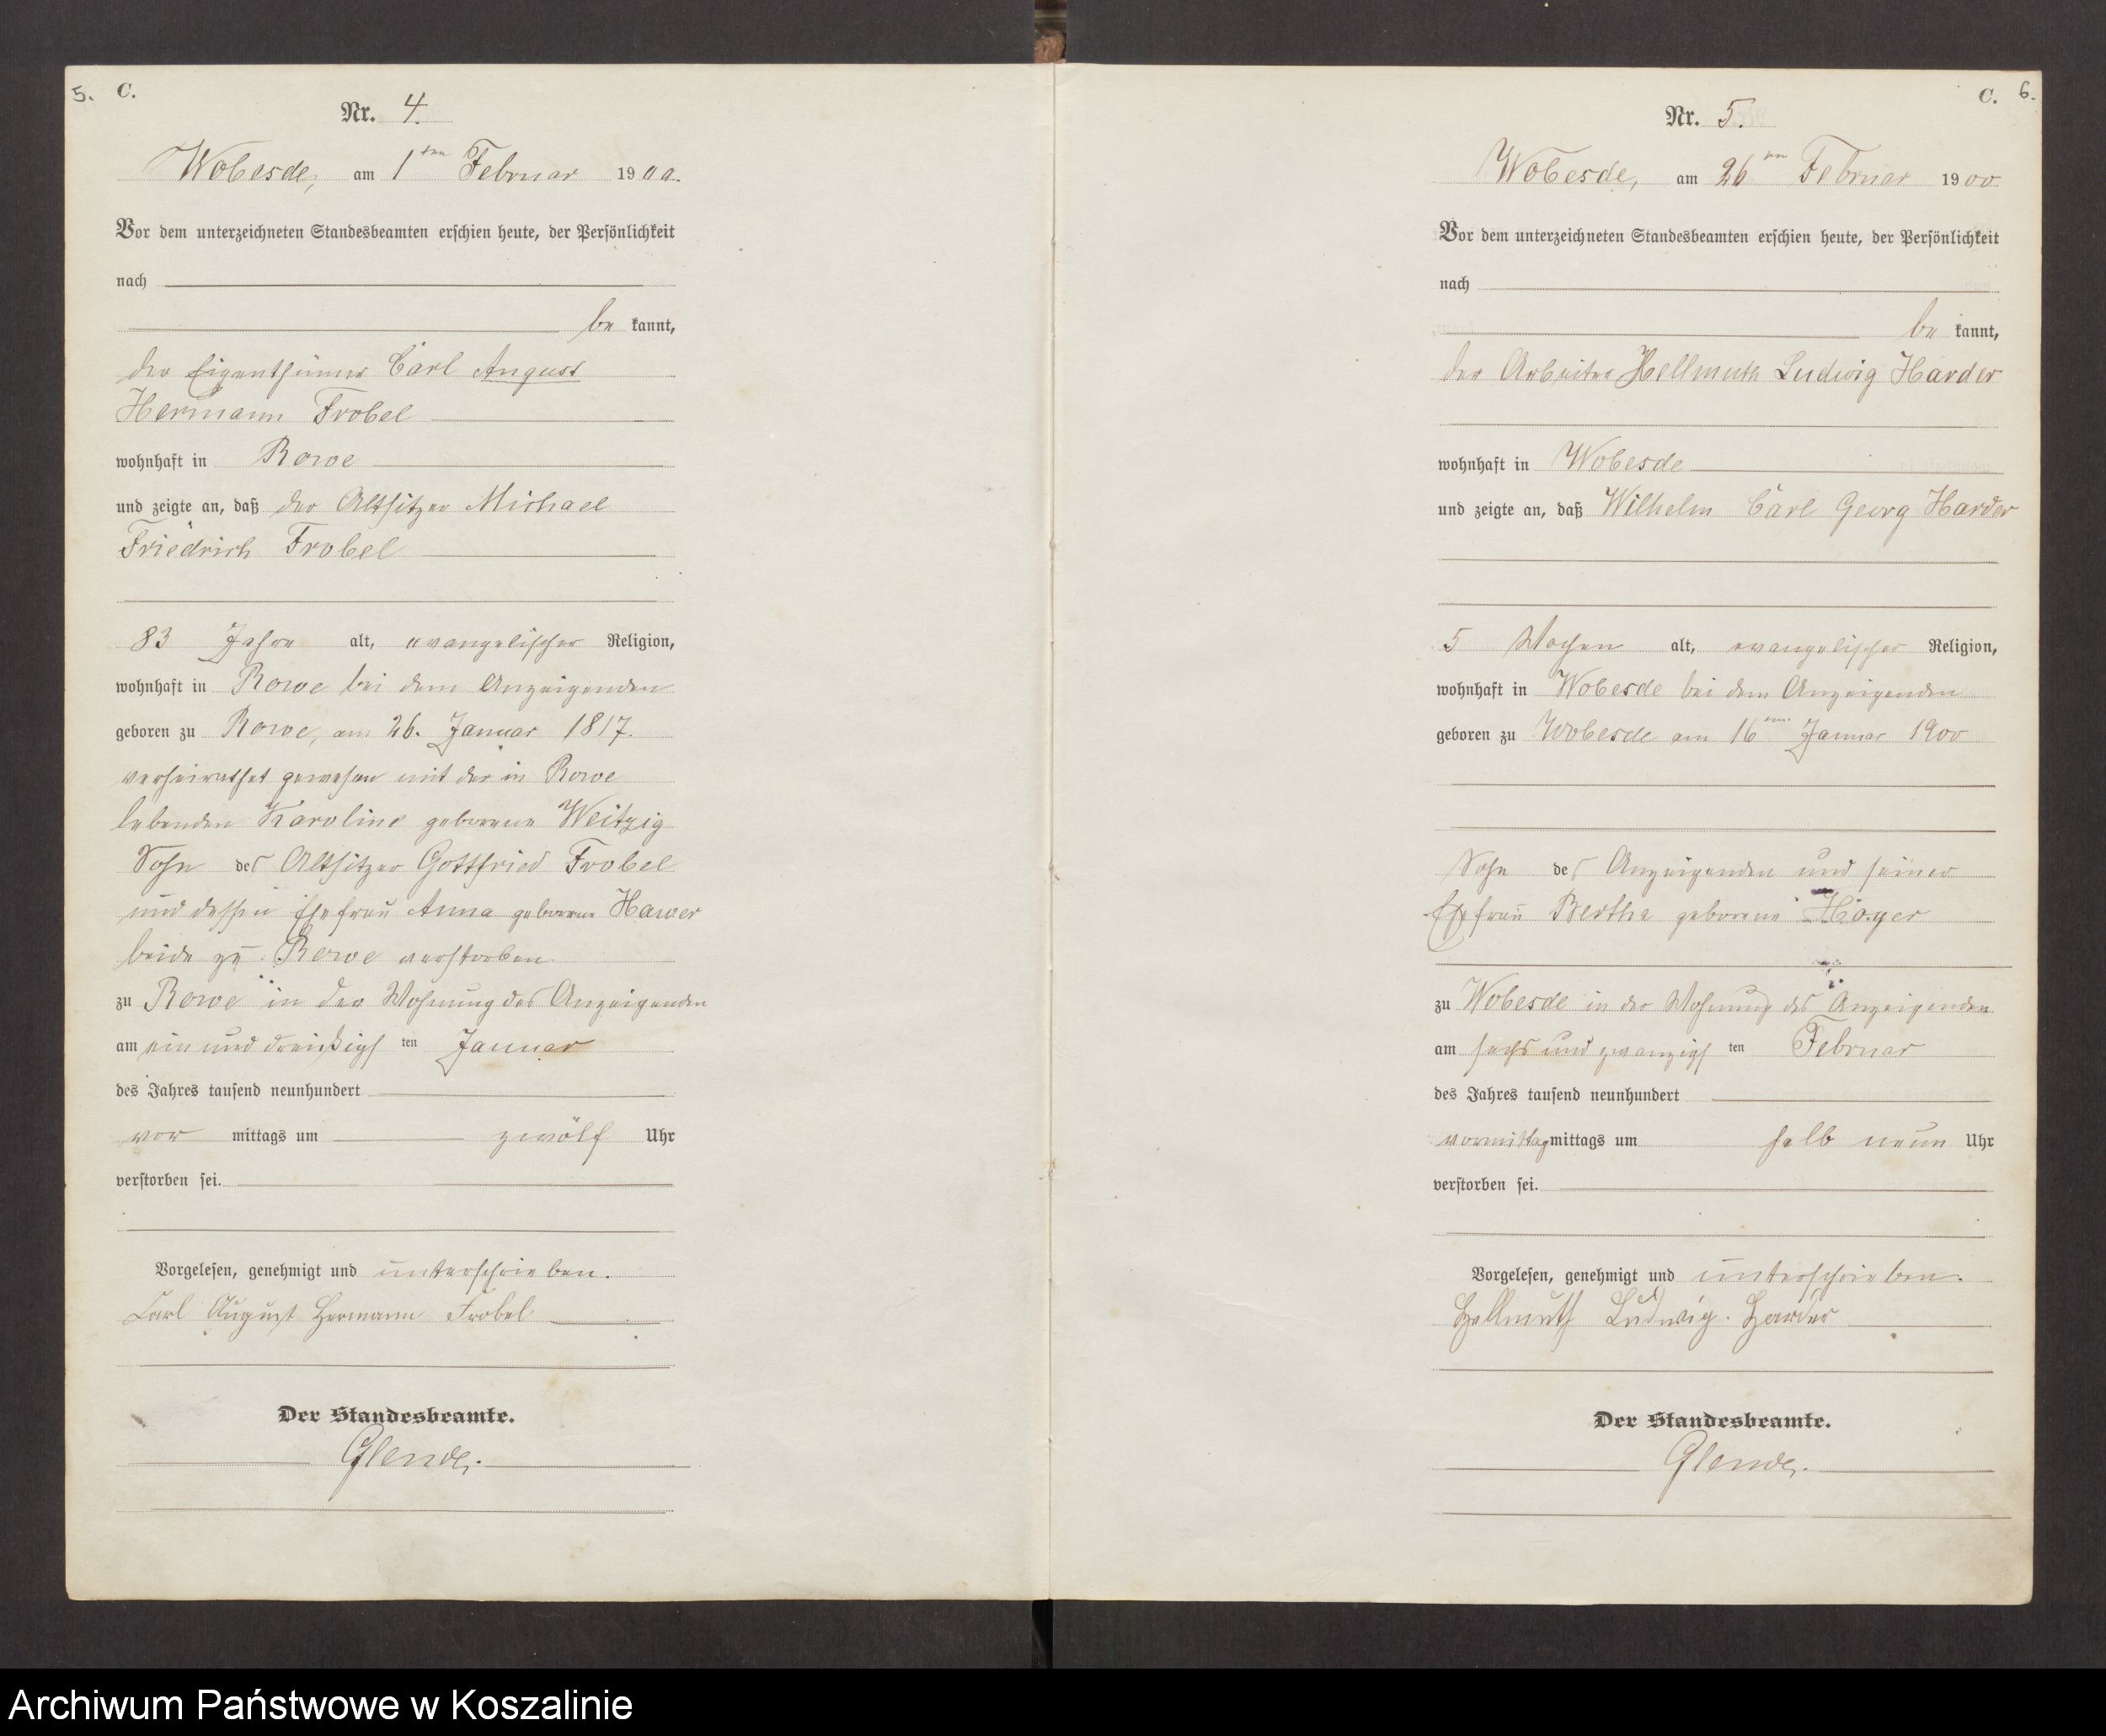 5. C.
Nr. 4.
Wobesde, am 1ten Februar 1900.
Vor dem unterzeichneten Standesbeamten erschien heute, der Persönlichkeit
nach
be kannt,
der Eigenthümer Carl August
Hermann Frobel
wohnhaft in Rowe
und zeigte an, daß der Altsitzer Michael
Friedrich Frobel
83 Jahre alt, evangelischer Religion,
wohnhaft in Rowe bei dem Anzeigenden
geboren zu Rowe, am 26. Januar 1817.
verheirathet gewesen mit der in Rowe
lebenden Karoline geborene Weitzig
Sohn des Altsitzer Gottfried Frobel
und dessen Ehefrau Anna geborene Hawer
beide zu Rowe verstorben
zu Rowe in der Wohnung des Anzeigenden
am ein und dreißigsten Januar
des Jahres tausend neunhundert
vor mittags um zwölf Uhr
verstorben sei.
Vorgelesen, genehmigt und unterschrieben.
Carl August Hermann Frobel
Der Standesbeamte.
Glende.
C. 6.
Nr. 5.
Wobesde, am 26ten Februar 1900
Vor dem unterzeichneten Standesbeamten erschien heute, der Persönlichkeit
nach
be kannt,
der Arbeiter Hellmuth Ludwig Harder
wohnhaft in Wobesde
und zeigte an, daß Wilhelm Carl Georg Harder
5 Wochen alt, evangelischer Religion,
wohnhaft in Wobesde bei dem Anzeigenden
geboren zu Wobesde am 16ten Januar 1900
Sohn des Anzeigenden und seiner
Ehefrau Bertha geborene Hoyer
zu Wobesde in der Wohnung des Anzeigenden
am sechs und zwanzigsten Februar
des Jahres tausend neunhundert
vormittag mittags um halb neun Uhr
verstorben sei.
Vorgelesen, genehmigt und unterschrieben.
Hellmuth Ludwig Harder
Der Standesbeamte.
Glende.
Archiwum Państwowe w Koszalinie